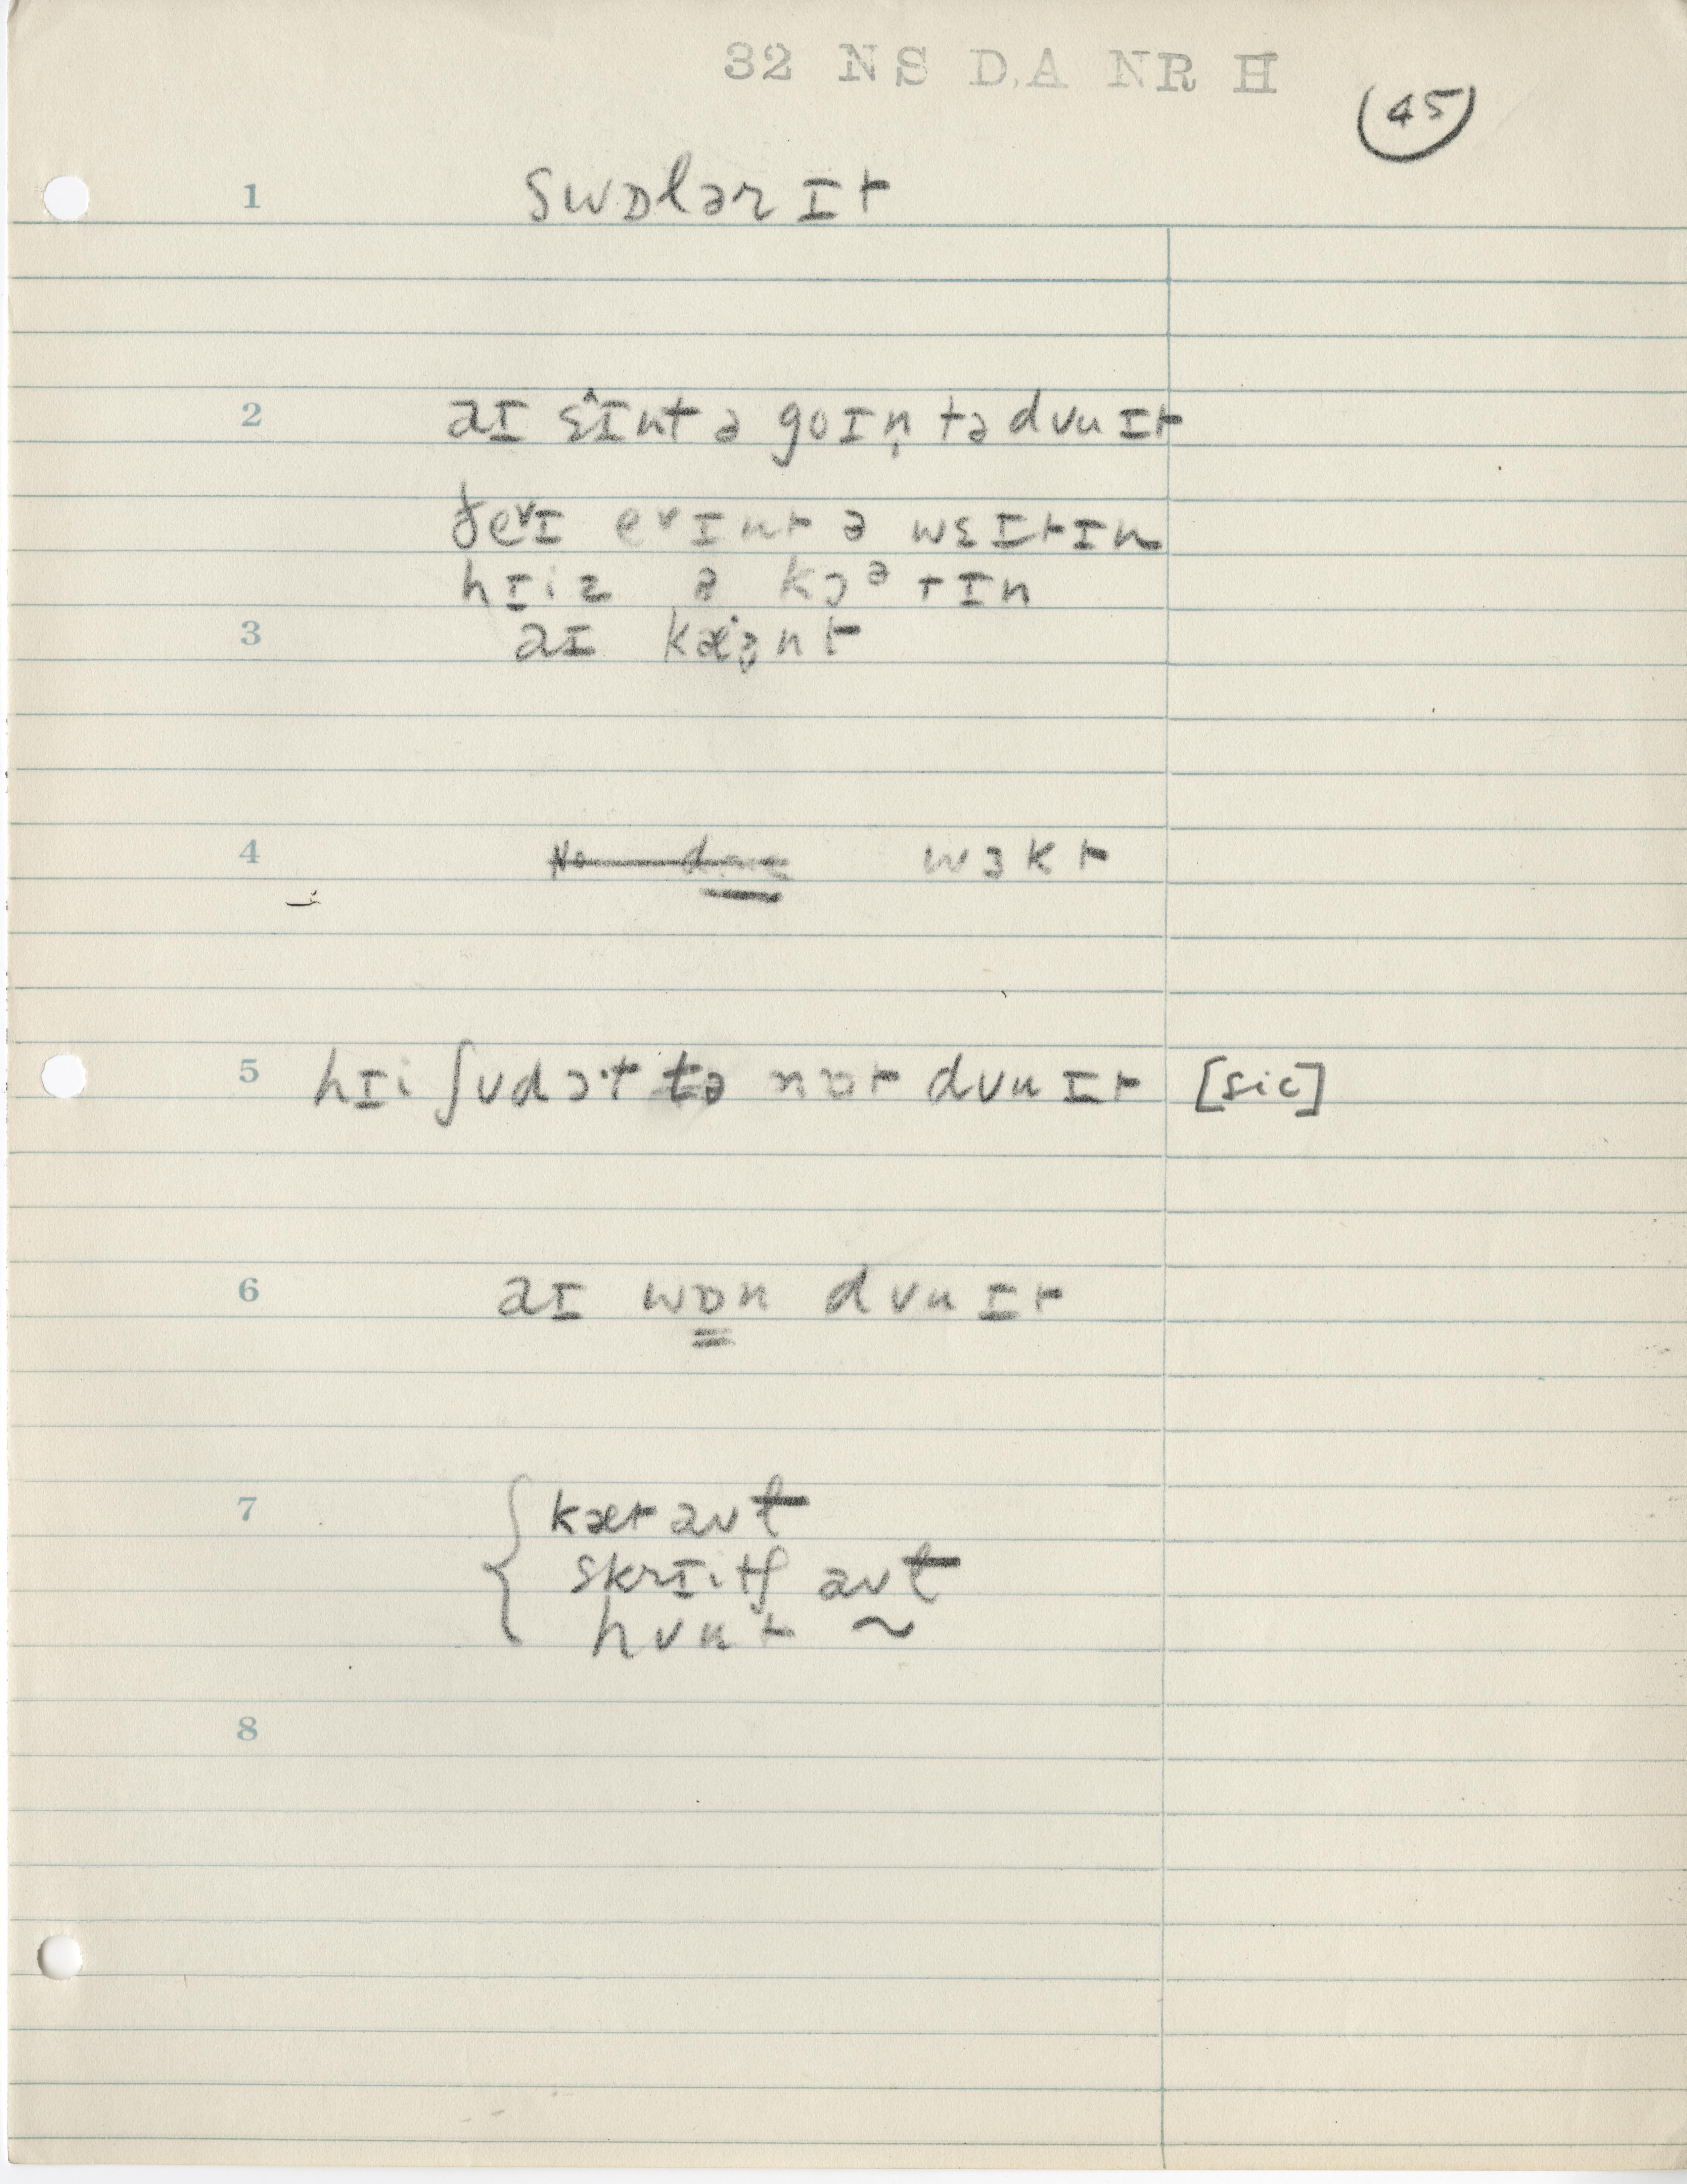 32 NS D.A NR H
(45)
1 swɒlər ɪt
2 aɪ ɛ^ɪnt ə goɪn̩ tə dʊu ɪt
ðeᵛɪ eᵛɪnt ə wɛɪtɪn
hɪiz ə kɔᵊtɪn
3 aɪ kæ̇ə̯nt
4 wɜkt
5 hɪi ʃʊd ɔ·t tə nɒt dʊu ɪt [sic]
6 aɪ wɒn dʊu ɪt
7 { kæt aʊt
skrɪitʃ aʊt
hʊut ~
8